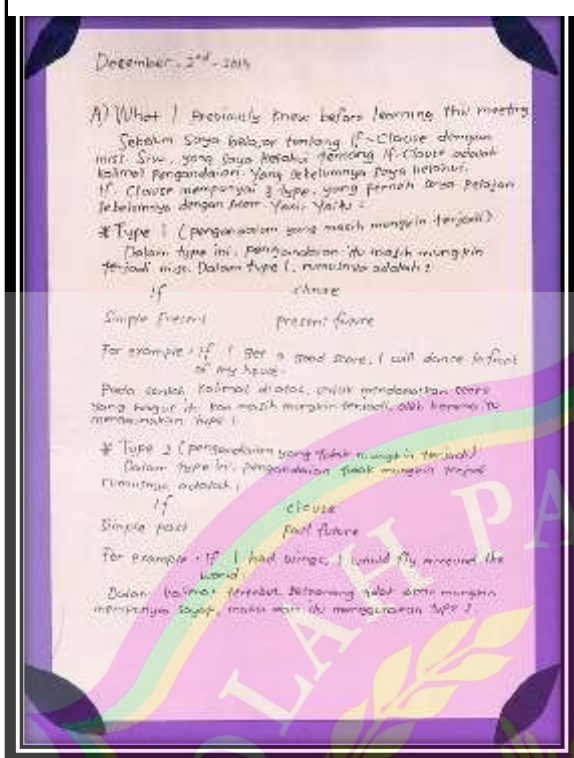 December, 2nd - 2013
A) What I Previously knew before learning this meeting
Sebelum Saya belajar tentang If-Clause dengan
miss Siw, yang saya ketahui tentang If Clause adalah
kalimat pengandaian. Yang sebelumnya saya ketahui,
If Clause mempunyai 3 type, yang pernah saya pelajari
Sebelumnya dengan Yani. Yaitu :
* Type 1 (pengandaian yang masih mungkin terjadi)
Dalam type ini, pengandaian itu masih mungkin
terjadi miss. Dalam type 1, rumusnya adalah :
If clause
Simple Present present future
For example : If I get a good score, I will dance in front
of my house.
Pada contoh kalimat diatas, untuk mendapatkan score
yang bagus itu kan masih mungkin terjadi, oleh karena itu
menggunakan type 1.
* Type 2 (pengandaian yang tidak mungkin terjadi)
Dalam type ini, pengandaian tidak mungkin terjadi
rumusnya adalah :
If clause
Simple past Past future
For example : If I had wings, I would fly around the
world.
Dalam kalimat tersebut, seseorang tidak mungkin
mempunyai sayap, maka dari itu menggunakan type 2.
LAH PA